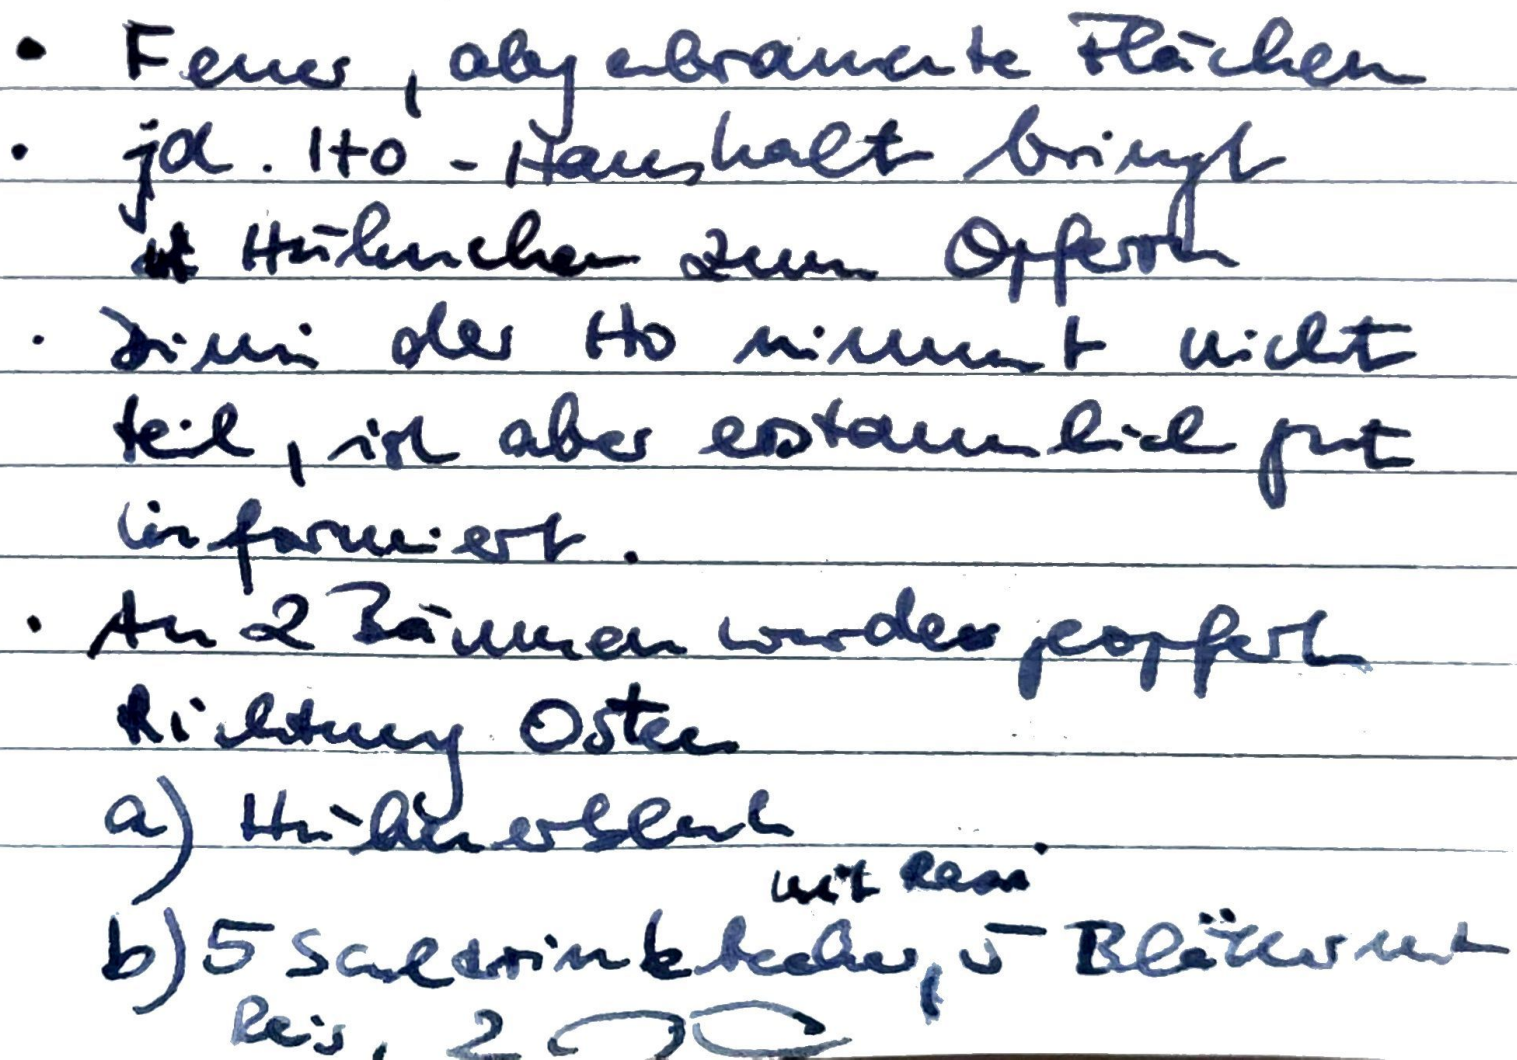 • Feuer, abgebrannte Flächen
• jd. Ho-Haushalt bringt
Hühnchen zum Opfern
• der Ho nimmt nicht
teil, ist aber erstaunlich gut
informiert.
• An 2 Bäumen werden geopfert
Richtung Osten
a) Hühnerblut
mit Rasi
b) 5 Saltrinkbecher, 5 Blätter mit
Reis, 2